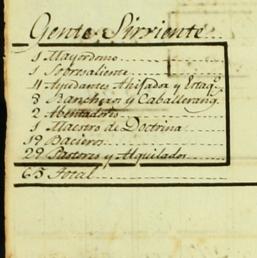 Gente Sirviente
1 Mayordomo
1 Sobresaliente
4 Ayudantes Ahijador y
8 Rancheros y Caballerang.
2 Abentadores
1 Maestro de Doctrina
19 Bacieros
29 Pastores y Alquilados
65 Total